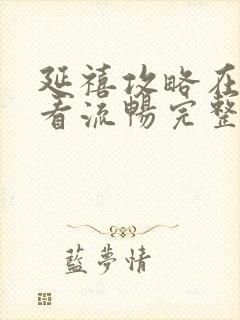 延禧攻略在
看流暢完整
藍夢情